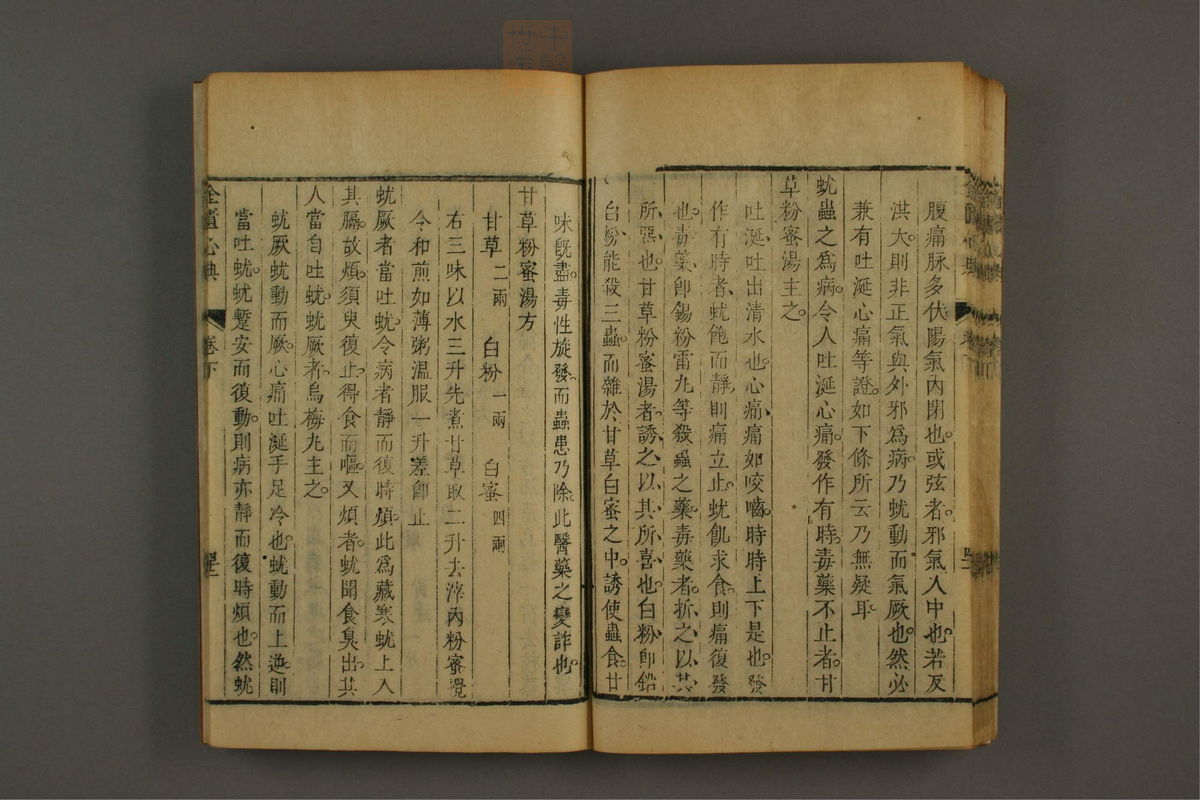 腹痛脉多伏陽氣內閉也或弦者邪氣入中也若反
洪大則非正氣與外邪爲病乃蚘動而氣厥也然必
兼有吐涎心痛等證如下條所云乃無疑耳
蚘蟲之爲病令人吐涎心痛發作有時毒藥不止者甘
草粉蜜湯主之
吐涎吐出清水也心痛痛如咬嚙時時上下是也發
作有時者蚘飽而靜則痛立止蚘飢求食則痛復發
也毒藥卽錫粉雷丸等殺蟲之藥毒藥者折之以其
所惡也甘草粉蜜湯者誘之以其所喜也白粉卽鉛
白粉能殺三蟲而雜於甘草白蜜之中誘使蟲食甘
味旣盡毒性旋發而蟲患乃除此醫藥之變詐也
甘草粉蜜湯方
甘草二兩 白粉一兩 白蜜四兩
右三味以水三升先煮甘草取二升去滓內粉蜜攪
令和煎如薄粥溫服一升差卽止
蚘厥者當吐蚘令病者靜而復時煩此爲藏寒蚘上入
其膈故煩須臾復止得食而嘔又煩者蚘聞食臭出其
人當自吐蚘蚘厥者烏梅丸主之
蚘厥蚘動而厥心痛吐涎手足冷也蚘動而上逆則
當吐蚘蚘蹔安而復動則病亦靜而復時煩也然蚘
金匱心典 卷下